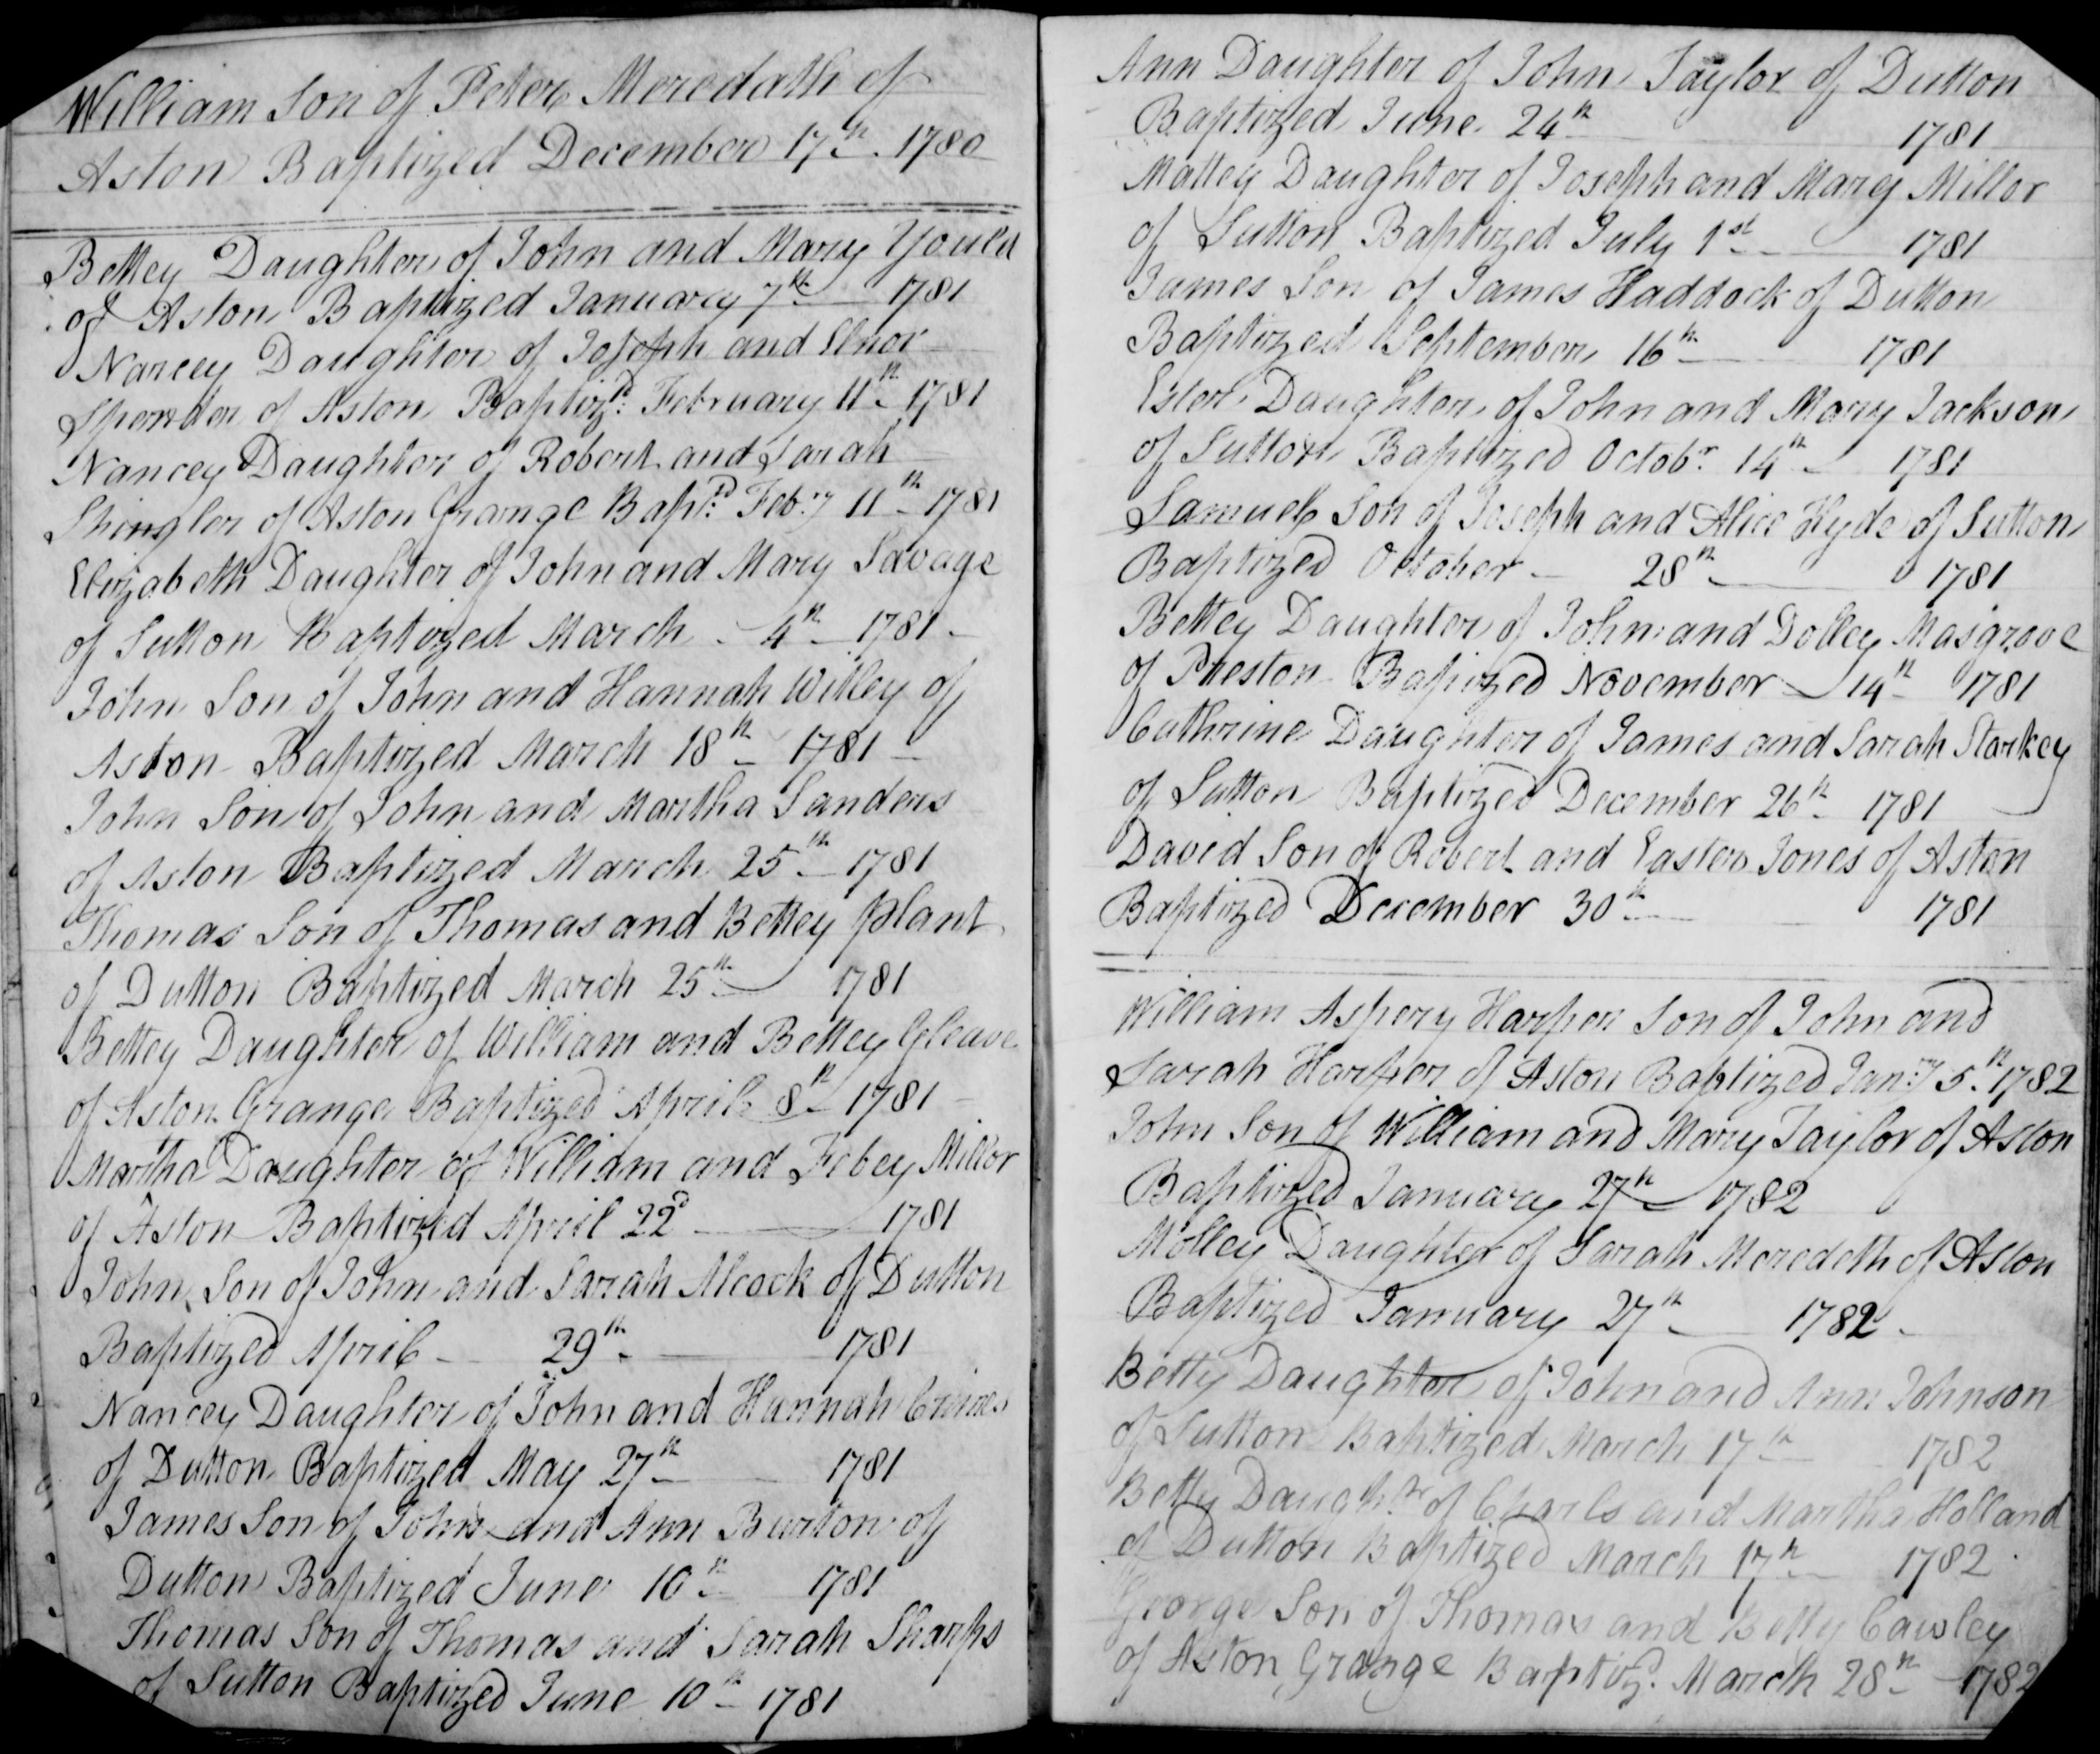 William Son of Peter Meredath of
Aston Baptized December 17th 1780
Bettey Daughter of John and Mary Yould
of Aston Baptized January 7th 1781
Nancey Daughter of Joseph and Elnor
Sponder of Aston Baptizd: February 11th 1781
Nancey Daughter of Robert and Sarah
Shingler of Aston Grange Bapd: Feb:y 11th 1781
Elizabeth Daughter of John and Mary Savage
of Sutton Baptized March 4th 1781
John Son of John and Hannah Willey of
Aston Baptized March 18th 1781
John Son of John and Martha Sanders
of Aston Baptized March 25th 1781
Thomas Son of Thomas and Bettey Plant
of Dutton Baptized March 25th 1781
Bettey Daughter of William and Bettey Gleave
of Aston Grange Baptized April 8th 1781
Martha Daughter of William and Febey Millor
of Aston Baptized April 22d 1781
John Son of John and Sarah Alcock of Dutton
Baptized April 29th 1781
Nancey Daughter of John and Hannah Crimes
of Dutton Baptized May 27th 1781
James Son of John and Ann Burton of
Dutton Baptized June 10th 1781
Thomas Son of Thomas and Sarah Sharps
of Sutton Baptized June 10th 1781
Ann Daughter of John Taylor of Dutton
Baptized June 24th 1781
Mattey Daughter of Joseph and Mary Millor
of Sutton Baptized July 1st 1781
James Son of James Haddock of Dutton
Baptized September 16th 1781
Ester Daughter of John and Mary Jackson
of Sutton Baptized Octobr 14th 1781
Samuel Son of Joseph and Alice Hyde of Sutton
Baptized October 28th 1781
Bettey Daughter of John and Dolley Masgrove
of Preston Baptized November 14th 1781
Cathrine Daughter of James and Sarah Starkey
of Sutton Baptized December 26th 1781
David Son of Robert and Easter Jones of Aston
Baptized December 30th 1781
William Aspery Harper Son of John and
Sarah Harper of Aston Baptized Jan:y 5th 1782
John Son of William and Mary Taylor of Aston
Baptized January 27th 1782
Molley Daughter of Sarah Meredeth of Aston
Baptized January 27th 1782
Betty Daughter of John and Ann Johnson
of Sutton Baptized March 17th 1782
Betty Daughtr of Charls and Martha Holland
of Dutton Baptized March 17th 1782
George Son of Thomas and Betty Cawley
of Aston Grange Baptizd. March 28th 1782